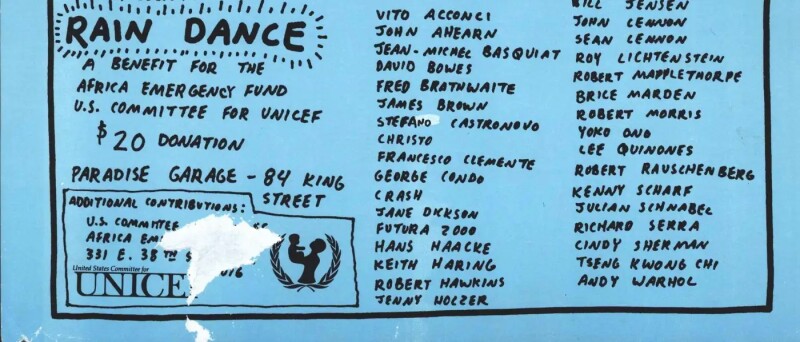 RAIN DANCE
A BENEFIT FOR THE
AFRICA EMERGENCY FUND
U.S. COMMITTEE FOR UNICEF
$20 DONATION
PARADISE GARAGE - 84 KING
STREET
ADDITIONAL CONTRIBUTIONS:
U.S. COMMITTEE
AFRICA
331 E. 38TH
United States Committee for
UNICE
VITO ACCONCI
JOHN AHEARN
JEAN-MICHEL BASQUIAT
DAVID BOWES
FRED BRATHWAITE
JAMES BROWN
STEFANO CASTRONOVO
CHRISTO
FRANCESCO CLEMENTE
GEORGE CONDO
CRASH
JANE DICKSON
FUTURA 2000
HANS HAACKE
KEITH HARING
ROBERT HAWKINS
JENNY HOLZER
BILL JENSEN
JOHN LENNON
SEAN LENNON
ROY LICHTENSTEIN
ROBERT MAPPLETHORPE
BRICE MARDEN
ROBERT MORRIS
YOKO ONO
LEE QUINONES
ROBERT RAUSCHENBERG
KENNY SCHARF
JULIAN SCHNABEL
RICHARD SERRA
CINDY SHERMAN
TSENG KWONG CHI
ANDY WARHOL